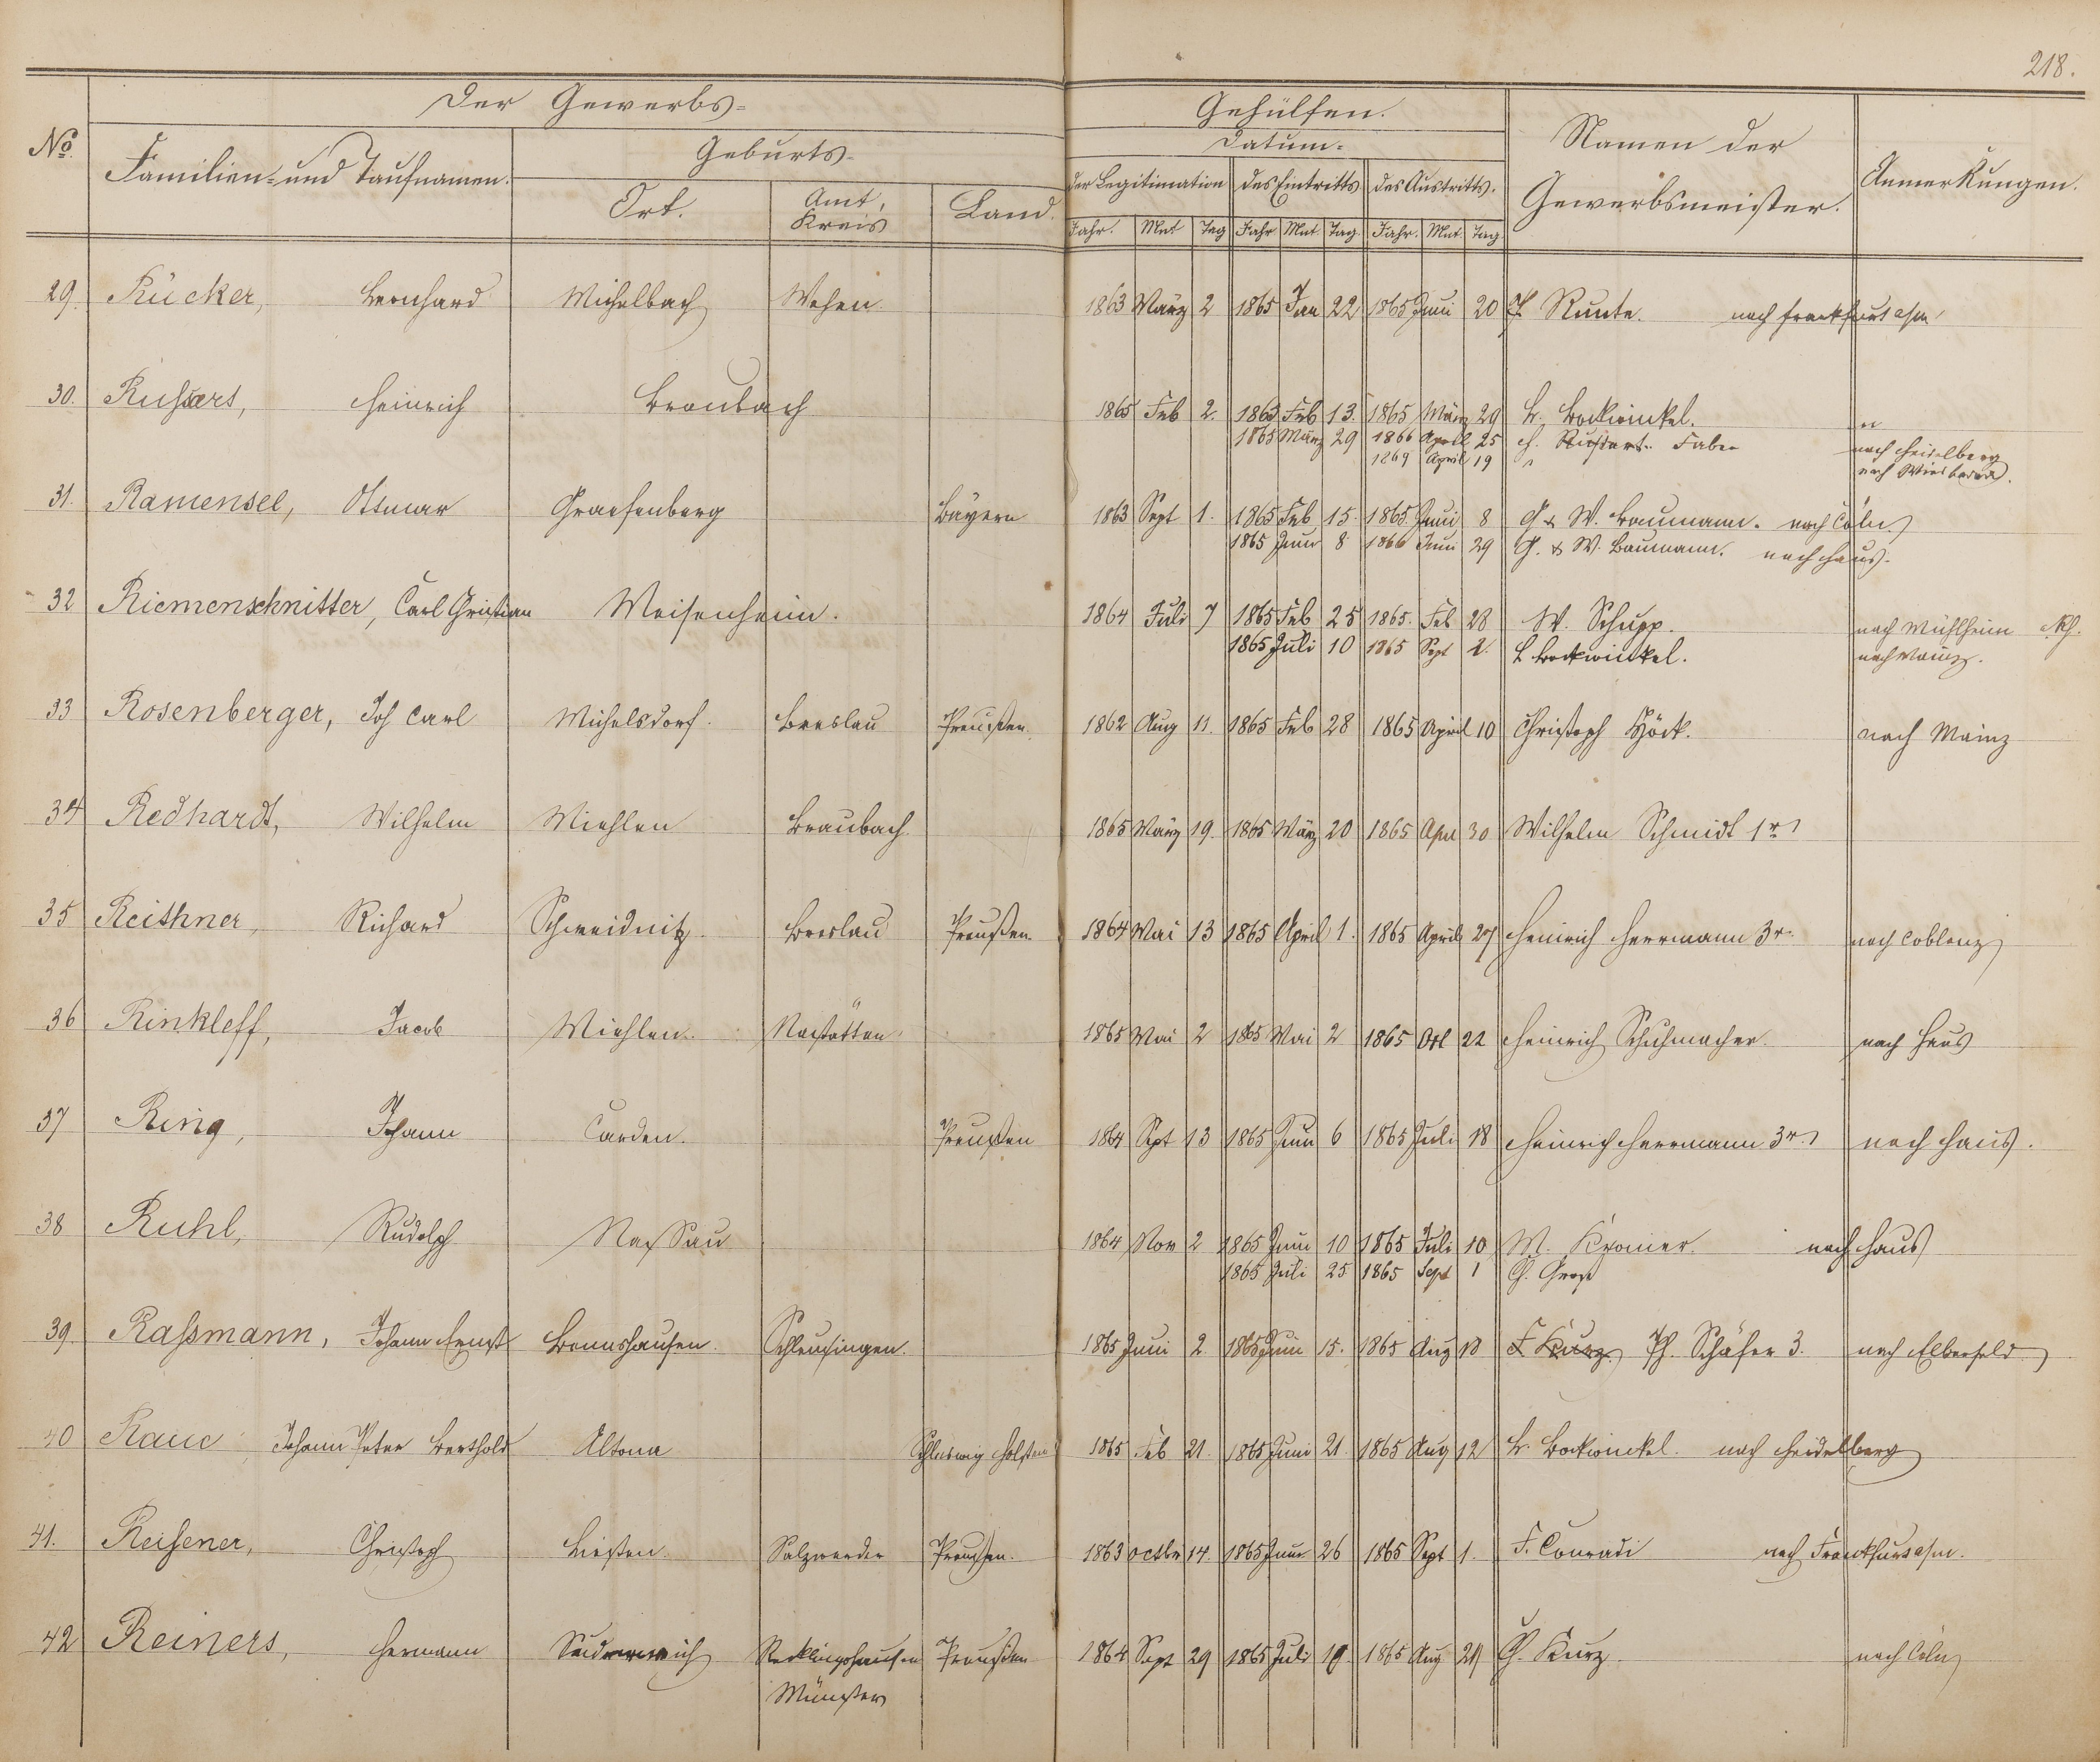 218.
Der Gewerbs-
Gehülfen.
No.
Familien- und Taufnamen.
Geburts-
Ort.
Amt, Kreis
Land.
Datum.
der Legitimation des Eintritts des Austritts.
Jahr. Mnt Tag Jahr Mnt. Tag. Jahr. Mnt. Tag.
Namen der
Gewerbsmeister.
Anmerkungen.
29. Rücker, Bernhard Michelbach Wehen. 1863 März 2 1865 Jan 22 1865 Juni 20 Runte. nach Frankfurt a/m
30. Heinrich Braubach 1865 Feb 2. 1863 Feb 13. 1865 März 29 Br. Bockwinkel.
1865 März 29 1866 April 25 H. Faber nach Heidelberg
1869 April 19 " nach Wiesbaden.
31. Ramensel, Ottmar Graefenberg Bayern 1863 Sept 1. 1865 Feb 15. 1865 Juni 8 G & W. Baumann. nach Cöln.
1865 Juni 8 1866 Juni 29 G. & W. Baumann. nach Haus.
32 Riemenschnitter, Carl Christian Meisenheim. 1864 Juli 7 1865 Feb 25 1865. Feb 28 W. Schupp. nach Mühlheim Rh.
1865 Juli 10 1865 Sept 2. B Bockwinkel. nach Mainz.
33 Rosenberger, Joh Carl Michelsdorf. Breslau Preußen. 1862 Aug 11. 1865 Feb 28 1865 April 10 Christoph Höck. nach Mainz
34 Redhardt, Wilhelm Miehlen Braubach 1865 März 19. 1865 März 20 1865 Apr 30 Wilhelm Schmidt 1r
35 Reithner, Richard Schweidnitz. Breslau Preußen. 1864 Mai 13 1865 April 1. 1865 April 27 Heinrich Herrmann 3r. nach Coblenz
36 Rinkleff, Jacob Miehlen. Nastätten. 1865 Mai 2 1865 Mai 2 1865 Oct 22 Heinrich Schuhmacher. nach Haus
37 Ring, Johann Carden. Preußen 1864 Sept 13 1865 Juni 6 1865 Juli 18 Heinrich Herrmann 3r. nach Haus.
38 Ruhl, Rudolph Nassau 1864 Nov 2 1865 Juni 10 1865 Juli 10 W. Kromer. nach Haus
1865 Juli 25 1865 Sept 1 Ch. Groß
39. Raßmann, Johann Ernst Bennshausen. Schleusingen. 1865 Juni 2. 1865 Juni 15. 1865 Aug 18 F Kurz. Ph. Schäfer 3. nach Elberfeld
40 Raue, Johann Peter Berthold Altona Schleswig Holstein 1865 Feb 21. 1865 Juni 21. 1865 Aug 12 Br. Bockwinkel. nach Heidelberg
41. Reisener, Christoph Liesten. Salzwedel Preußen. 1863 Octbr 14. 1865 Juni 26 1865 Sept 1. F. Conradi nach Frankfurt a/m.
42 Reiners, Hermann Recklinghausen Preußen 1864 Sept 29 1865 Juli 19. 1865 Aug 24 Ch. Kurz. nach Cöln
Münster